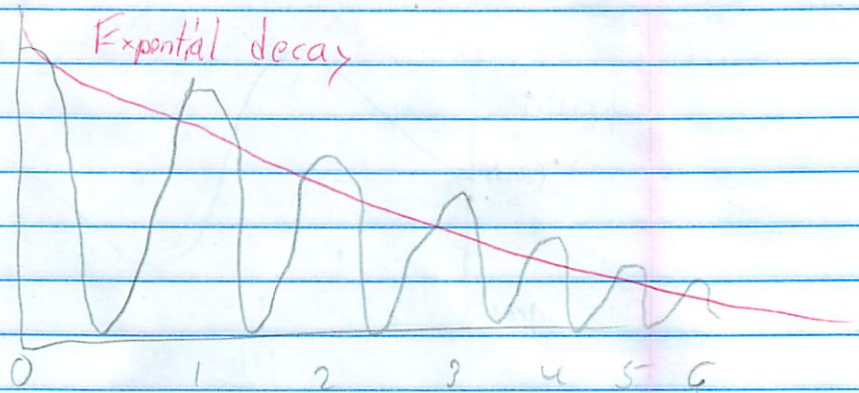 Expential decay
0 1 2 3 4 5 6